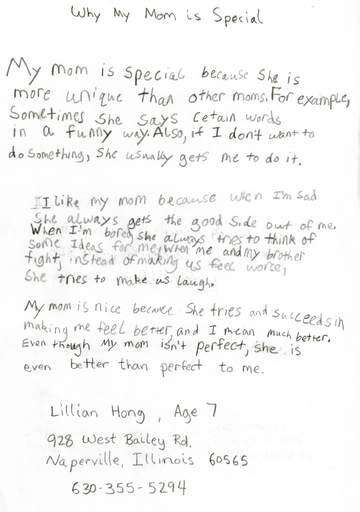 Why My Mom is Special
My mom is special because she is
more unique than other moms. For example,
Sometimes she says cetain words
in a funny way. Also, if I don't want to
do something, she usually gets me to do it.
I like my mom because when I'm sad
she always gets the good side out of me.
When I'm bored, she always tries to think of
some ideas for me, when me and my brother
fight, instead of making us feel worse,
she tries to make us laugh.
My mom is nice because she tries and succeeds in
making me feel better, and I mean much better.
Even though my mom isn't perfect, she is
even better than perfect to me.
Lillian Hong, Age 7
928 West Bailey Rd.
Naperville, Illinois 60565
630-355-5294